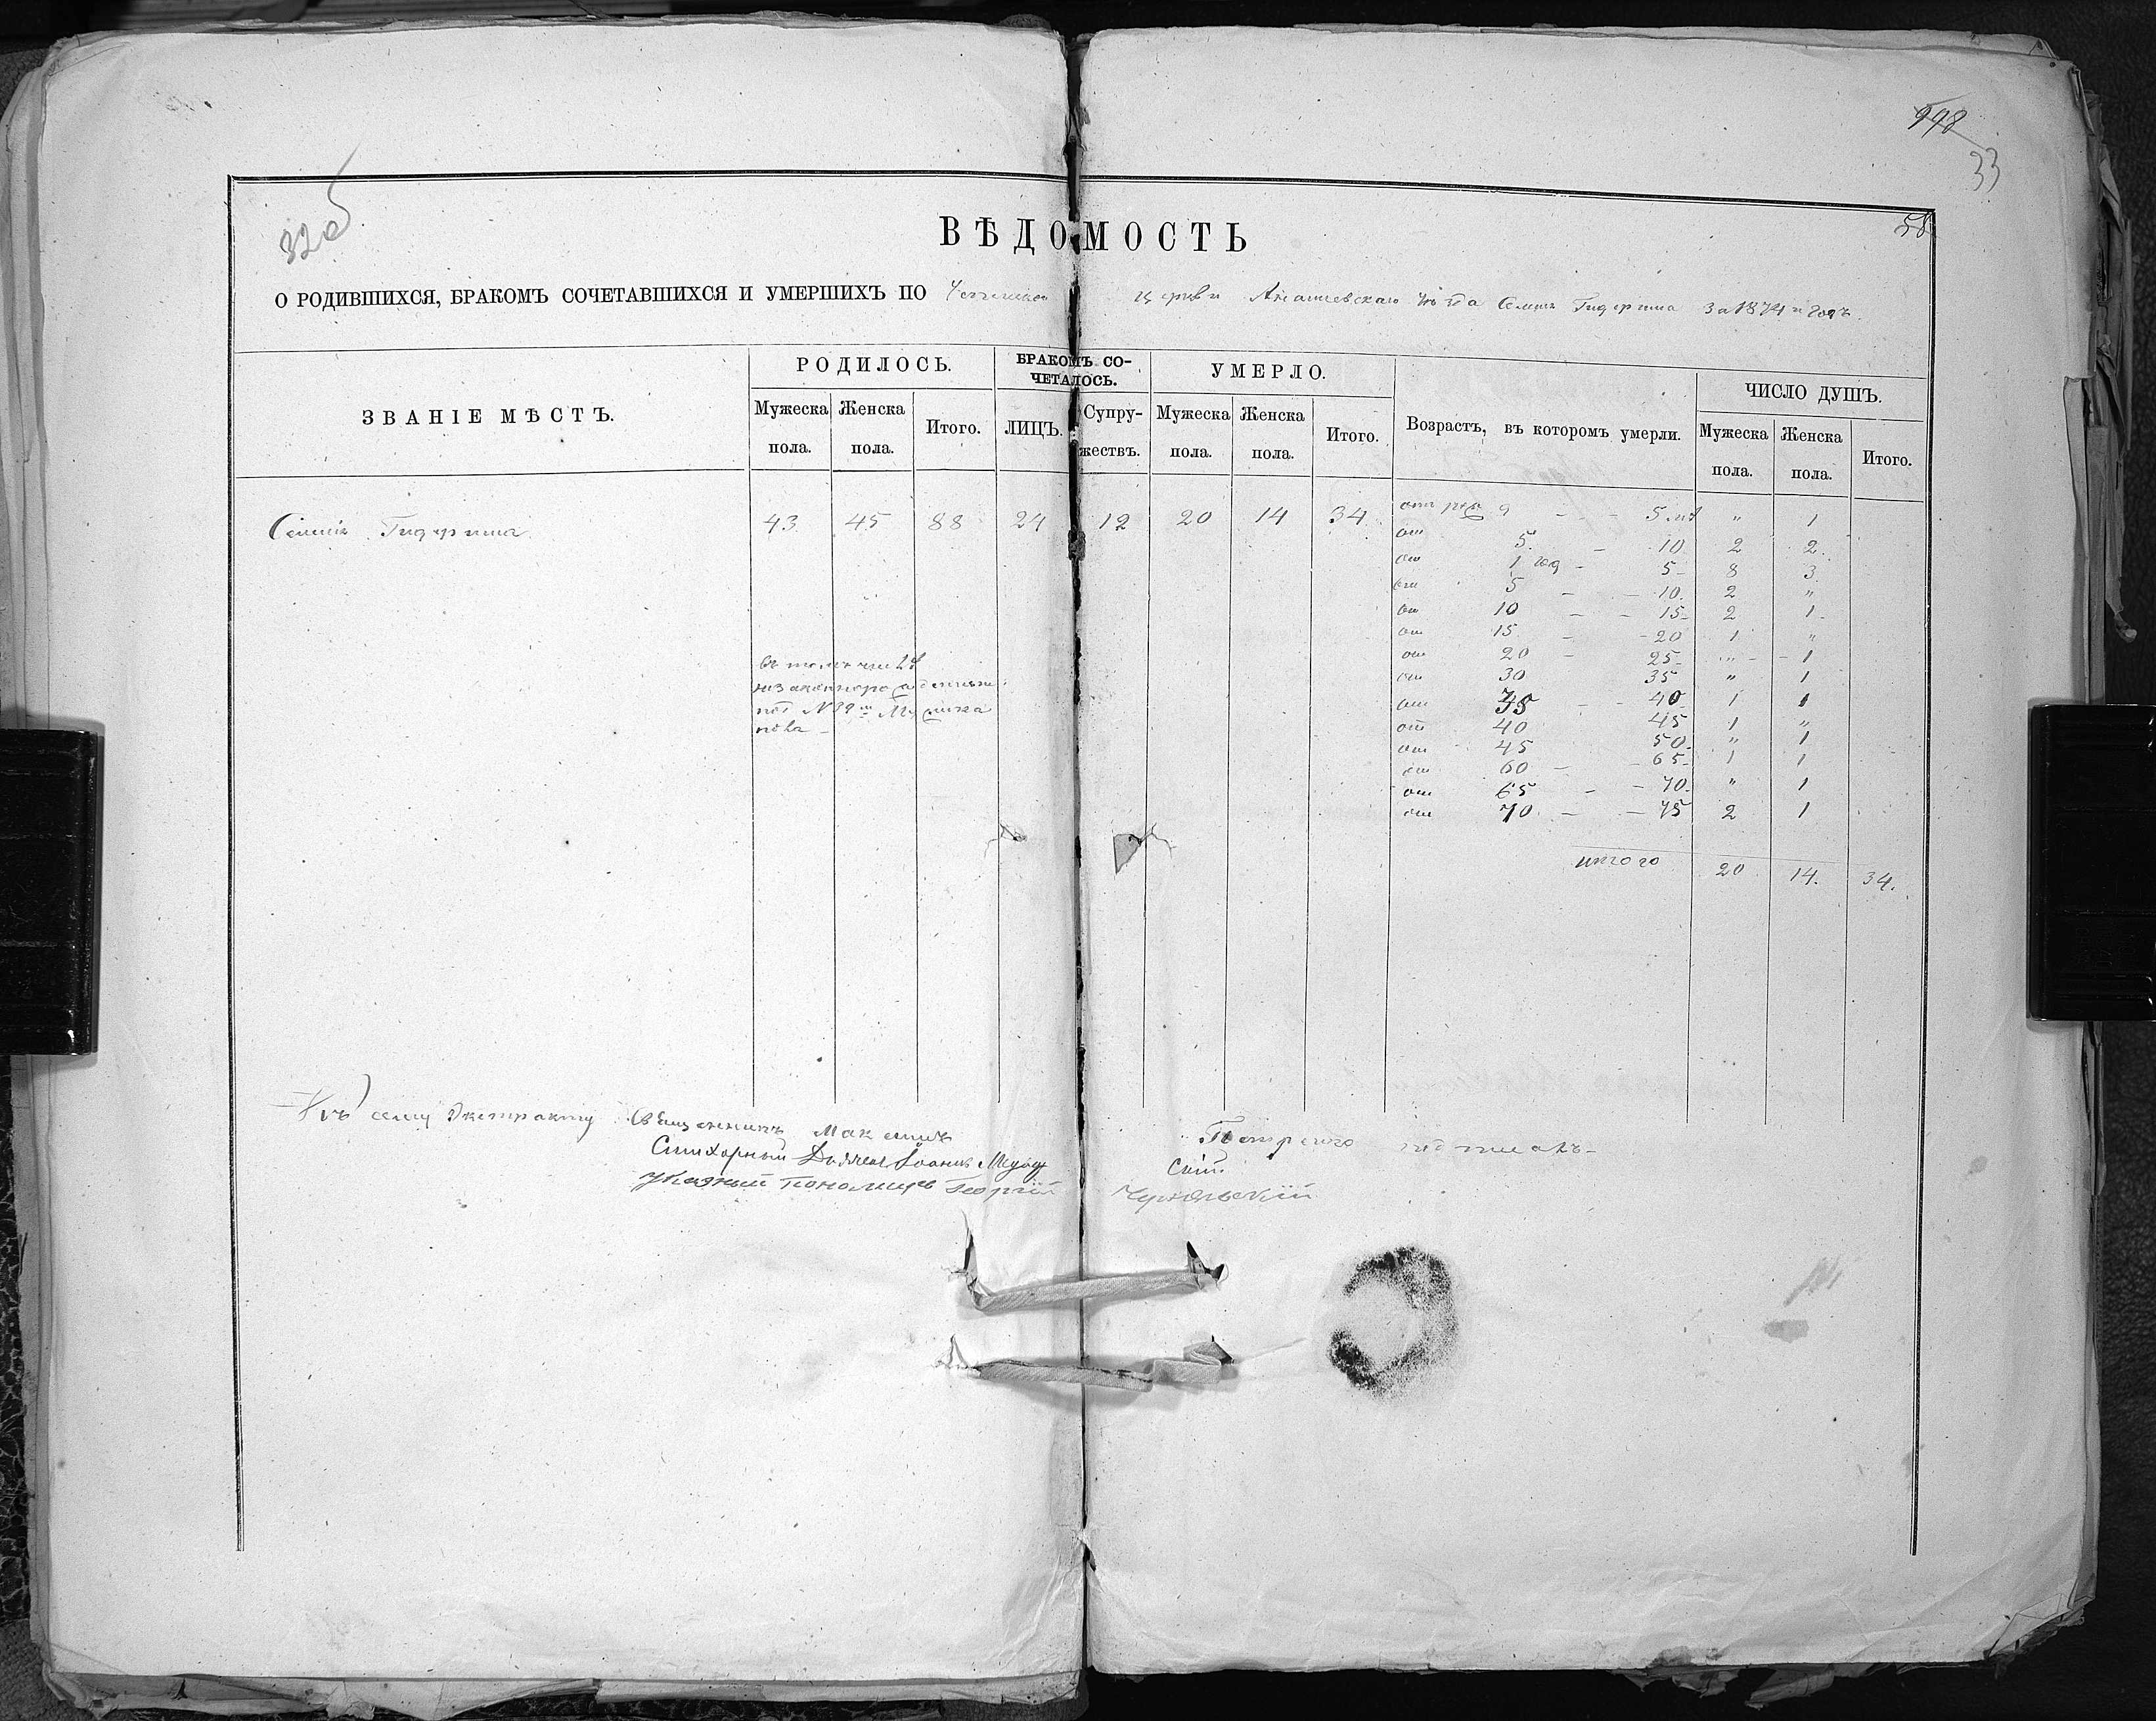 998
33
32об
58
ВѢДОМОСТЬ
О РОДИВШИХСЯ, БРАКОМЪ СОЧЕТАВШИХСЯ И УМЕРШИХЪ ПО Успенской церкви Ананьевскаго уѣзда Селенія Гидерима за 1874й годъ.
ЗВАНІЕ МѢСТЪ.
РОДИЛОСЬ.
Мужеска пола.
Женска пола.
Итого.
БРАКОМЪ СО-
ЧЕТАЛОСЬ.
ЛИЦЪ.
Супру-
жествъ.
УМЕРЛО.
Мужеска пола.
Женска пола.
Итого.
Возрастъ, въ которомъ умерли.
ЧИСЛО ДУШЪ.
Мужеска пола.
Женска пола.
Итого.
Гидерима 43 45 88 24 12 20 14 34
5 " 1
от 5 - 10 2 2
от 1 год - 5 - 8 3
от 5 - - 10. 2 "
от 10 - - 15 - 2 1 -
от 15 - - 20 1 "
от 20 - 25 - " - - 1
от 30 35 " 1
от 35 - - 40 1 1
от 40 45 1 "
от 45 50 " 1
от 60 - - 65 - 1 1
от 65 - - 70. " 1
от 70 - - 75 2 1
итого 20 14. 34.
въ томъ числѣ
незаконнорожденный
под №
Къ сему экстракту Священникъ Максимъ Петренко подписалъ -
Стихарный Дьячекъ Іоаннъ
Указный Пономарь Георгій